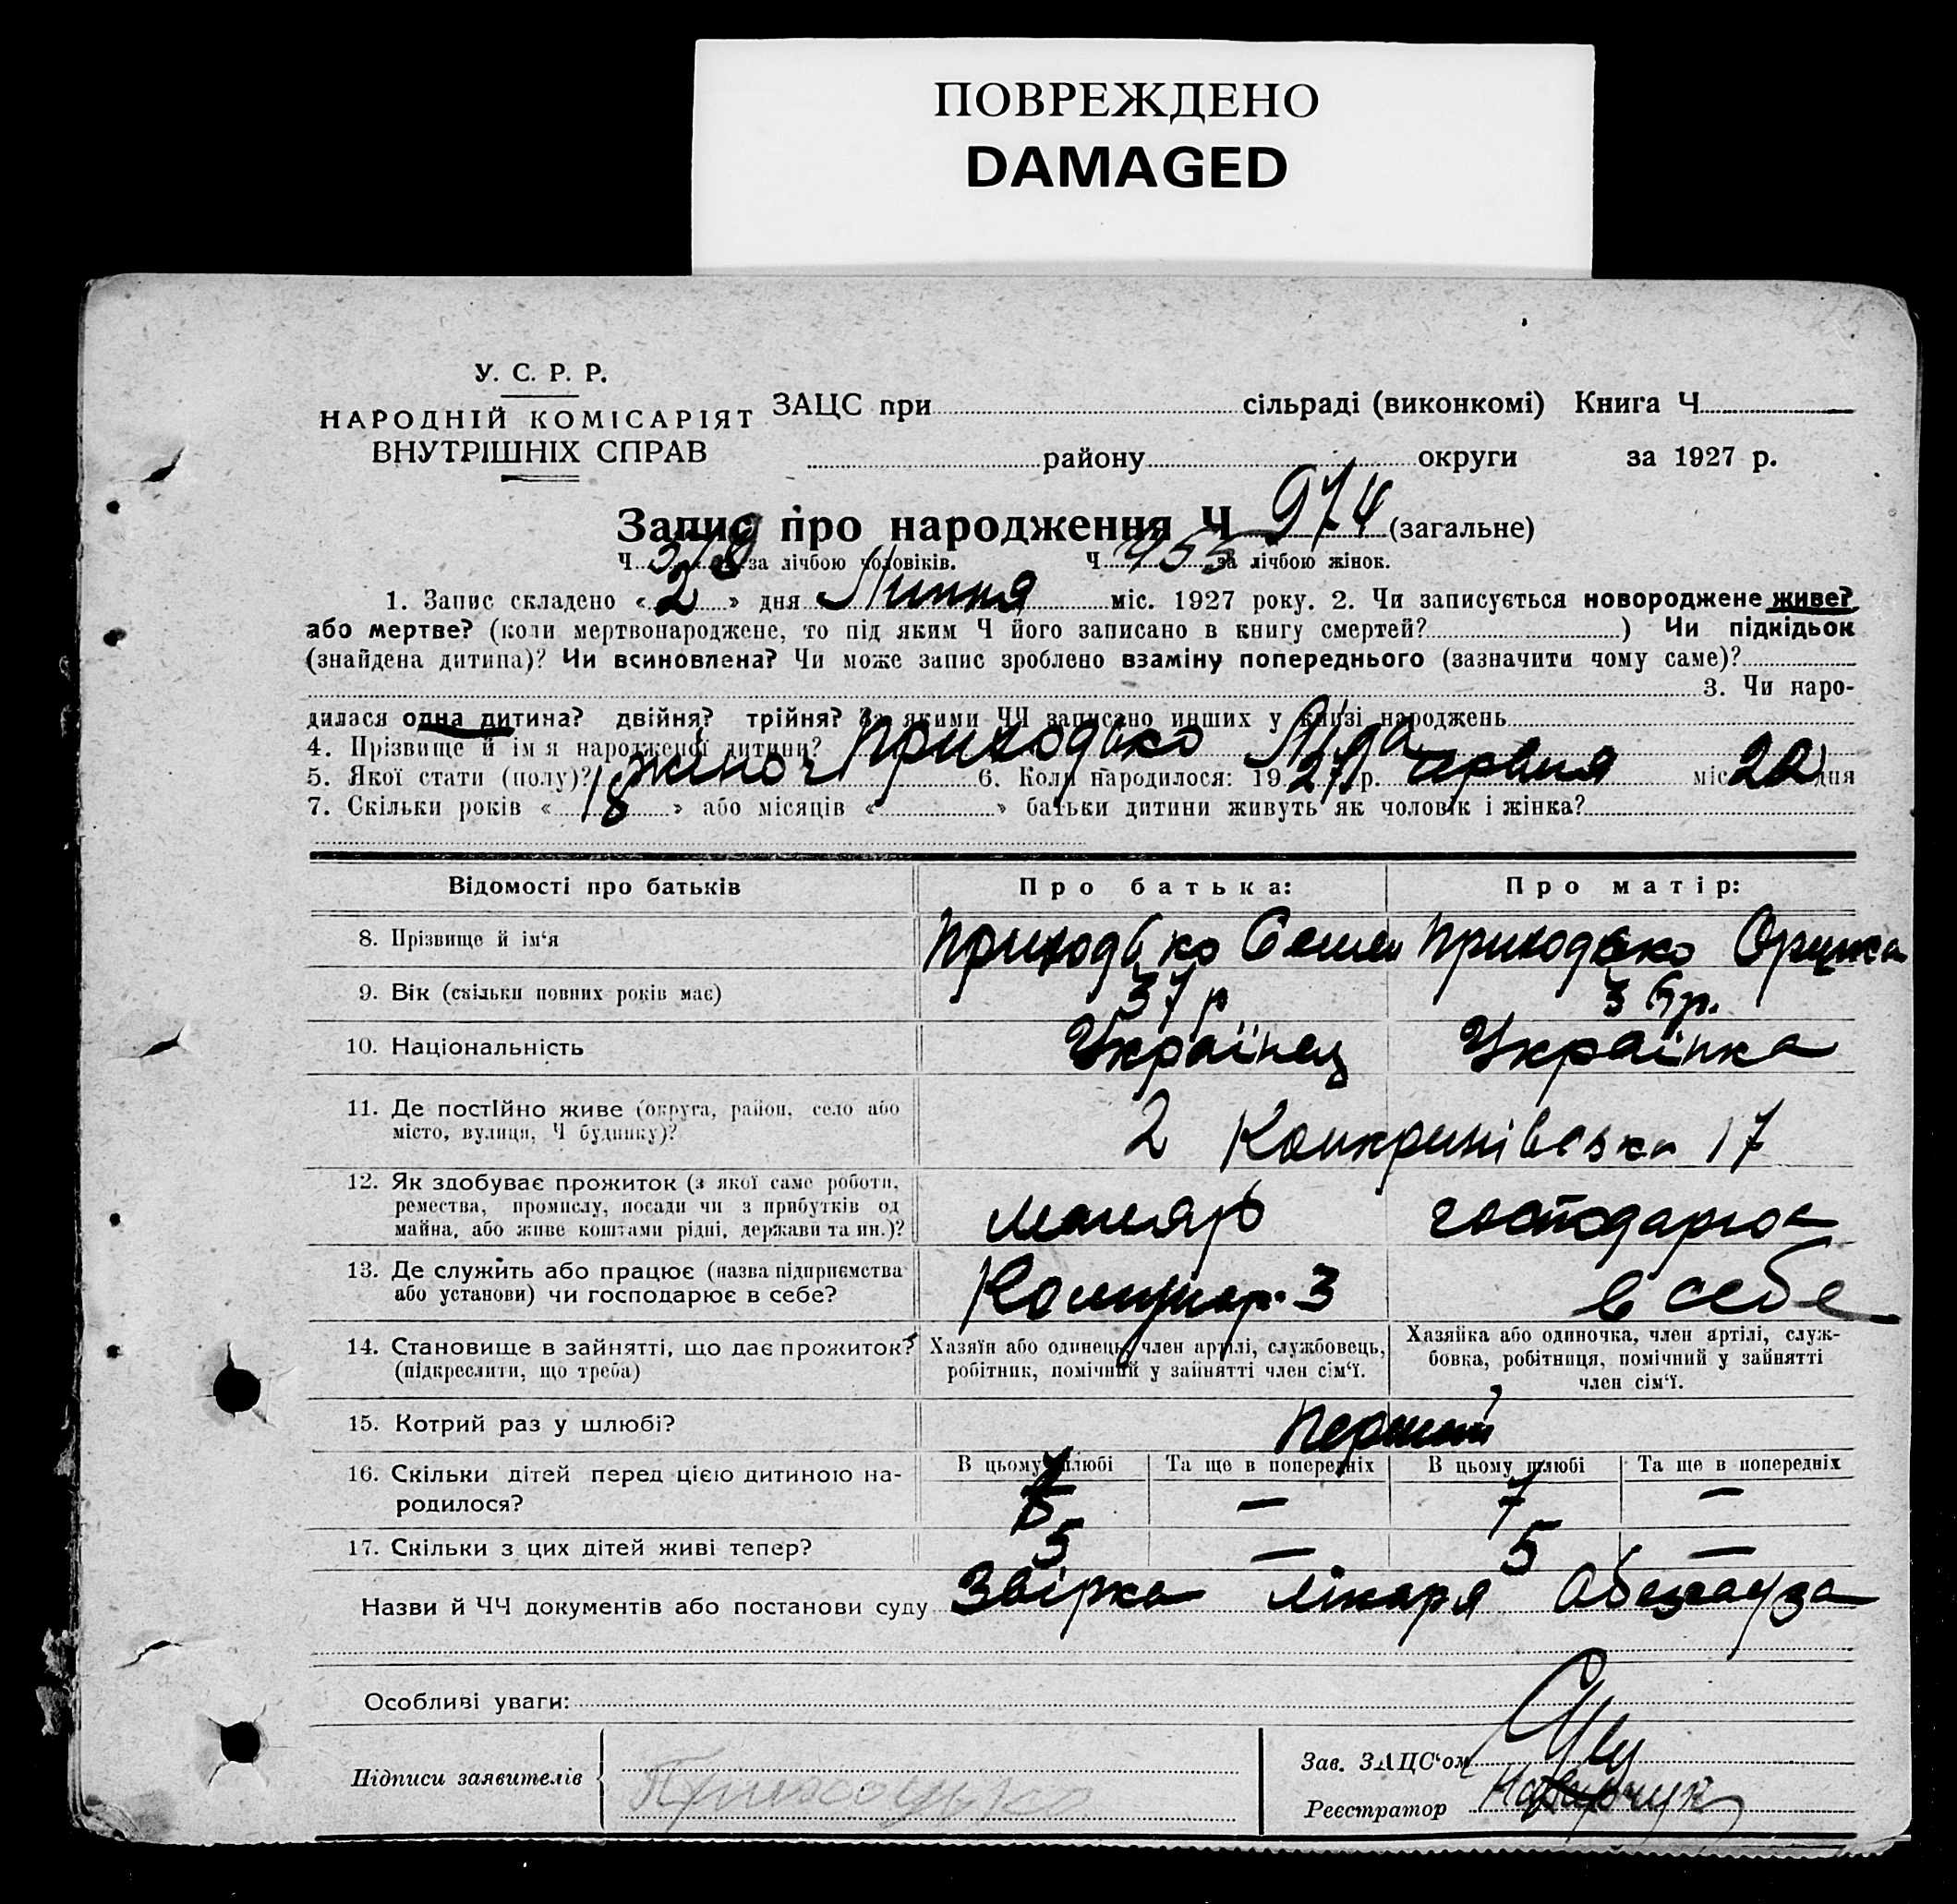 ПОВРЕЖДЕНО
DAMAGED
У. С. Р. Р.
НАРОДНІЙ КОМІСАРІЯТ
ВНУТРІШНІХ СПРАВ
ЗАЦС при сільраді (виконкомі) Книга Ч.
району округи за 1927 р.
Запис про народження Ч 974 (загальне)
Ч. за лічбою чоловіків. Ч. 455 за лічбою жінок.
1. Запис складено « 2 » дня Липня міс. 1927 року. 2. Чи записується новороджене живе?
або мертве? (коли мертвонароджене, то під яким Ч його записано в книгу смертей? ) Чи підкідьок
(знайдена дитина)? Чи всиновлена? Чи може запис зроблено взаміну попереднього (зазначити чому саме)?
3. Чи наро-
дилася одна дитина? двійня? трійня? За якими ЧЧ записано инших у книзі народжень
4. Прізвище й ім'я народженої дитини? Приходько Ліда
5. Якої стати (полу)? жіноч 6. Коли народилося: 1927 р. червня міс. 22 дня
7. Скільки років « 18 » або місяців « » батьки дитини живуть як чоловік і жінка?
Відомості про батьків Про батька: Про матір:
8. Прізвище й ім'я Приходько Семен Приходько Оришка
9. Вік (скільки повних років має) 37 р 36 р.
10. Національність Українец Українка
11. Де постійно живе (округа, район, село або
місто, вулиця, Ч будинку)? 2 17
12. Як здобуває прожиток (з якої саме роботи,
ремества, промислу, посади чи з прибутків од
майна, або живе коштами рідні, держави та ин.)? маляр
13. Де служить або працює (назва підприємства
або установи) чи господарює в себе? 3 в себе
14. Становище в зайнятті, що дає прожиток?
(підкреслити, що треба)
Хазяїн або одинець, член артілі, службовець,
робітник, помічний у зайнятті член сім'ї.
Хазяйка або одиночка, член артілі, служ-
бовка, робітниця, помічний у зайнятті
член сім'ї.
15. Котрий раз у шлюбі? Перший
16. Скільки дітей перед цією дитиною на-
родилося?
В цьому шлюбі Та ще в попередніх В цьому шлюбі Та ще в попередніх
— 7 —
17. Скільки з цих дітей живі тепер? 5 — 5 —
Назви й ЧЧ документів або постанови суду Звірка лікаря
Особливі уваги:
Підписи заявителів Приходько
Зав. ЗАЦС'ом
Реєстратор